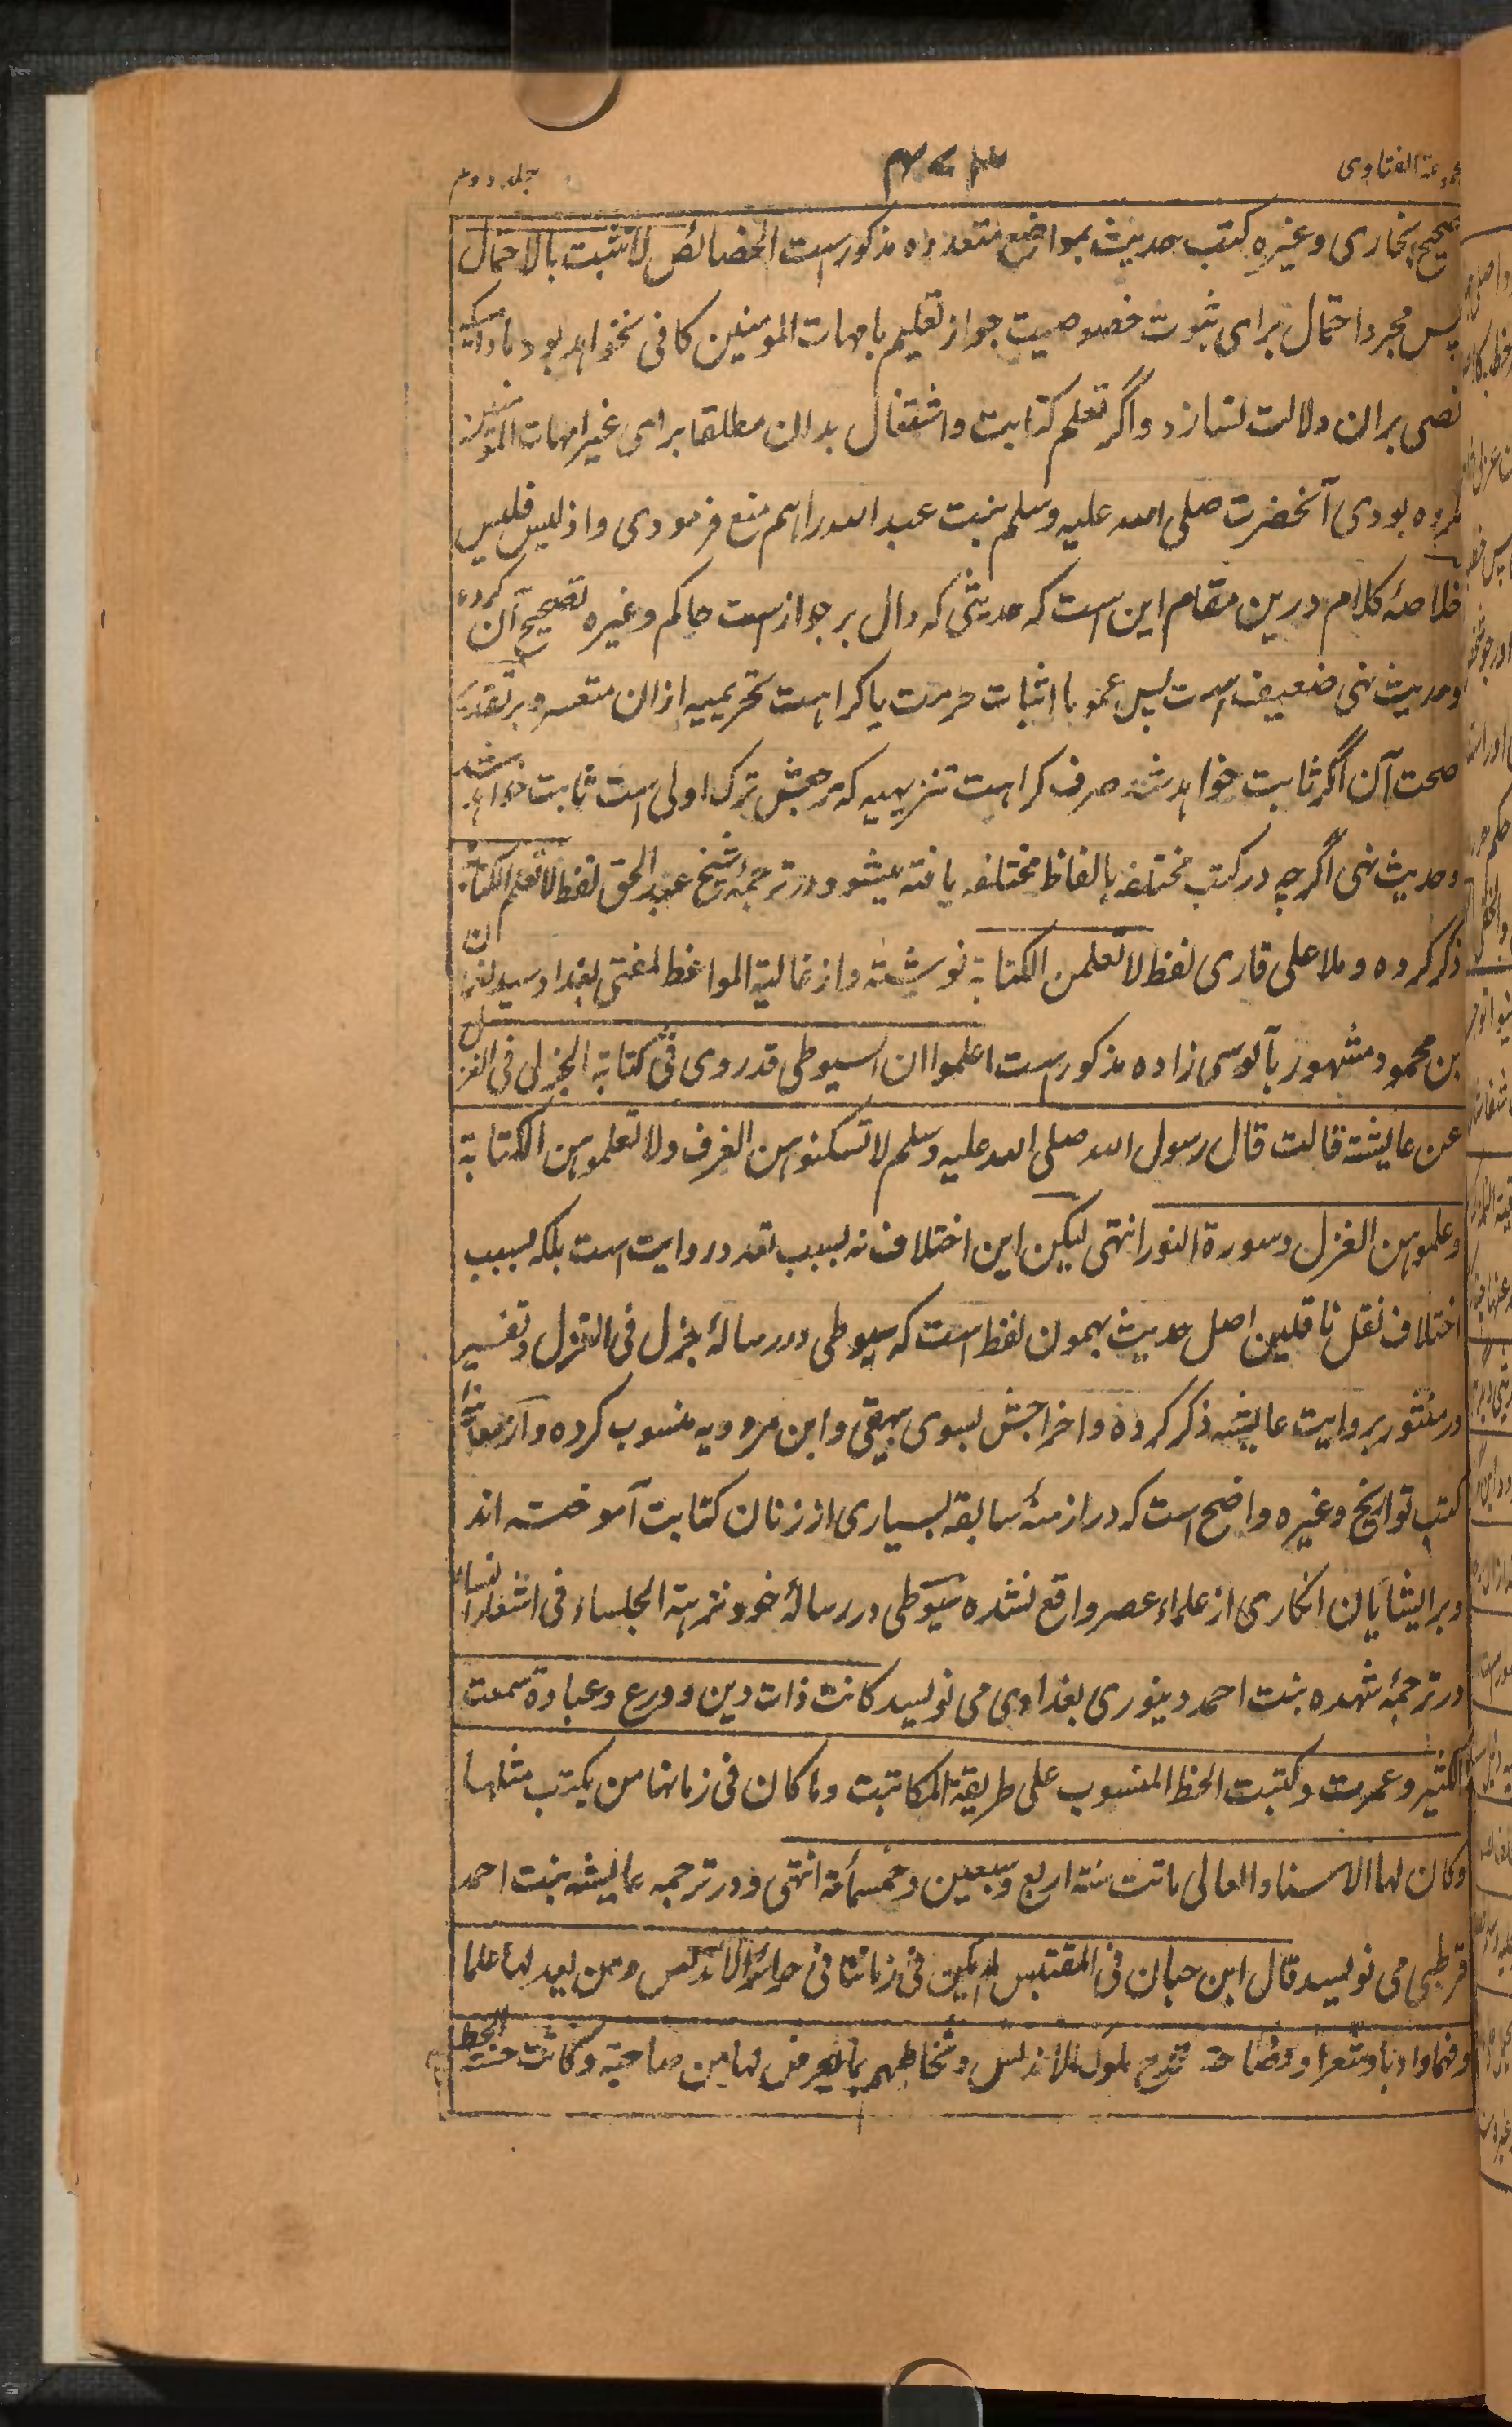 مجموعة الفتاوی ۴۷۳ جلد دوم
صحیح بخاری و غیره کتب حدیث بمواضع متعدده مذکورست الخصائص لا تثبت بالاحتمال
پس مجرد احتمال برای ثبوت خصوصیت جواز تعلیم بامهات المومنین کافی نخواهد بود تا وقتیکه
نصی بران دلالت نسازد و اگر تعلم کتابت و اشتغال بدان مطلقا برای غیر امهات المومنین
مکروه بودی آنحضرت صلی الله علیه وسلم بنت عبد الله را هم منع فرمودی و اذ لیس فلیس
خلاصۀ کلام درین مقام این ست که حدیثی که دال بر جواز ست حاکم و غیره تصحیح آن کرده
و حدیث نهی ضعیف ست پس عموما اثبات حرمت یا کراهت تحریمیه ازان متعسر و بر تقدیر
صحت آن اگر ثابت خواهد شد صرف کراهت تنزیهیه که مرجعش ترک اولی ست ثابت خواهد شد
و حدیث نهی اگرچه در کتب مختلفه بالفاظ مختلفه یافته میشود در ترجمۀ شیخ عبد الحق لفظ لا تعلم الکتابة
ذکر کرده و ملا علی قاری لفظ لا تعلمن الکتابة نوشته و از غالیة المواعظ لمفتی بغداد سید نعمان
بن محمود مشهور بآلوسی زاده مذکور ست اعلموا ان السیوطی قد روی فی کتابه الجزل فی الغزل
عن عایشة قالت قال رسول الله صلی الله علیه وسلم لا تسکنوهن الغرف ولا تعلموهن الکتابة
وعلموهن الغزل وسورة النور انتهی لیکن این اختلاف نه بسبب تعدد روایت است بلکه بسبب
اختلاف نقل ناقلین اصل حدیث بهمون لفظ است که سیوطی در رسالۀ جزل فی الغزل و تفسیر
در منثور بروایت عایشه ذکر کرده و اخراجش بسوی بیهقی و ابن مردویه منسوب کرده و از معاینۀ
کتب تواریخ و غیره واضح است که در ازمنۀ سابقه بسیاری از زنان کتابت آموخته اند
و بر ایشایان انکاری از علماء عصر واقع نشده سیوطی در رسالۀ خود نزهة الجلساء فی اشعار النساء
در ترجمۀ شهده بنت احمد دینوری بغدادی می نویسد کانت ذات دین و ورع وعبادة سمعت
الکثیر وعمرت وکتبت الخط المنسوب علی طریقة الکاتبت وما کان فی زمانها من یکتب مثلها
وکان لها الاسناد العالی ماتت سنة اربع وسبعین وخمسمأة انتهی و در ترجمه عایشه بنت احمد
قرطبی می نویسد قال ابن حبان فی المقتبس لم یکن فی زمانها فی حرائر الاندلس من یعدلها علما
وفهما وادبا وشعرا وفصاحة تمدح ملوک الاندلس وتخاطبهم بما یعرض لها من صاحبة وکانت حسنة الخط